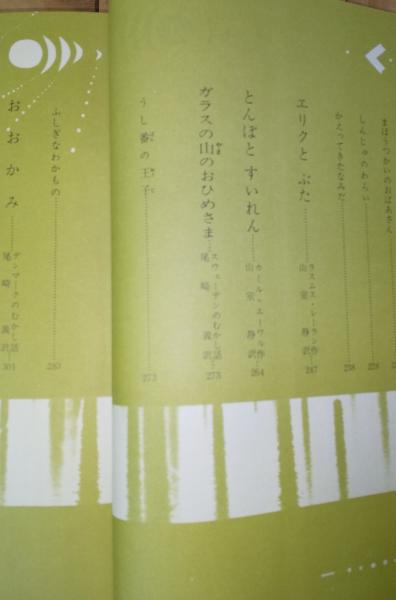 まほうつかいのおばあさん
しんじゅのわらい……228
かえってきたなみだ……238
エリクと ぶた……ラスムス・レーラン作 山室 静訳…247
とんぼと すいれん……カミル・エーワル作 山室 静訳…264
ガラスの山のおひめさま……スウェーデンのむかし話 尾崎 義訳…273
うし番の王子……273
ふしぎなわかもの……283
おおかみ……デンマークのむかし話 尾崎 義訳…301